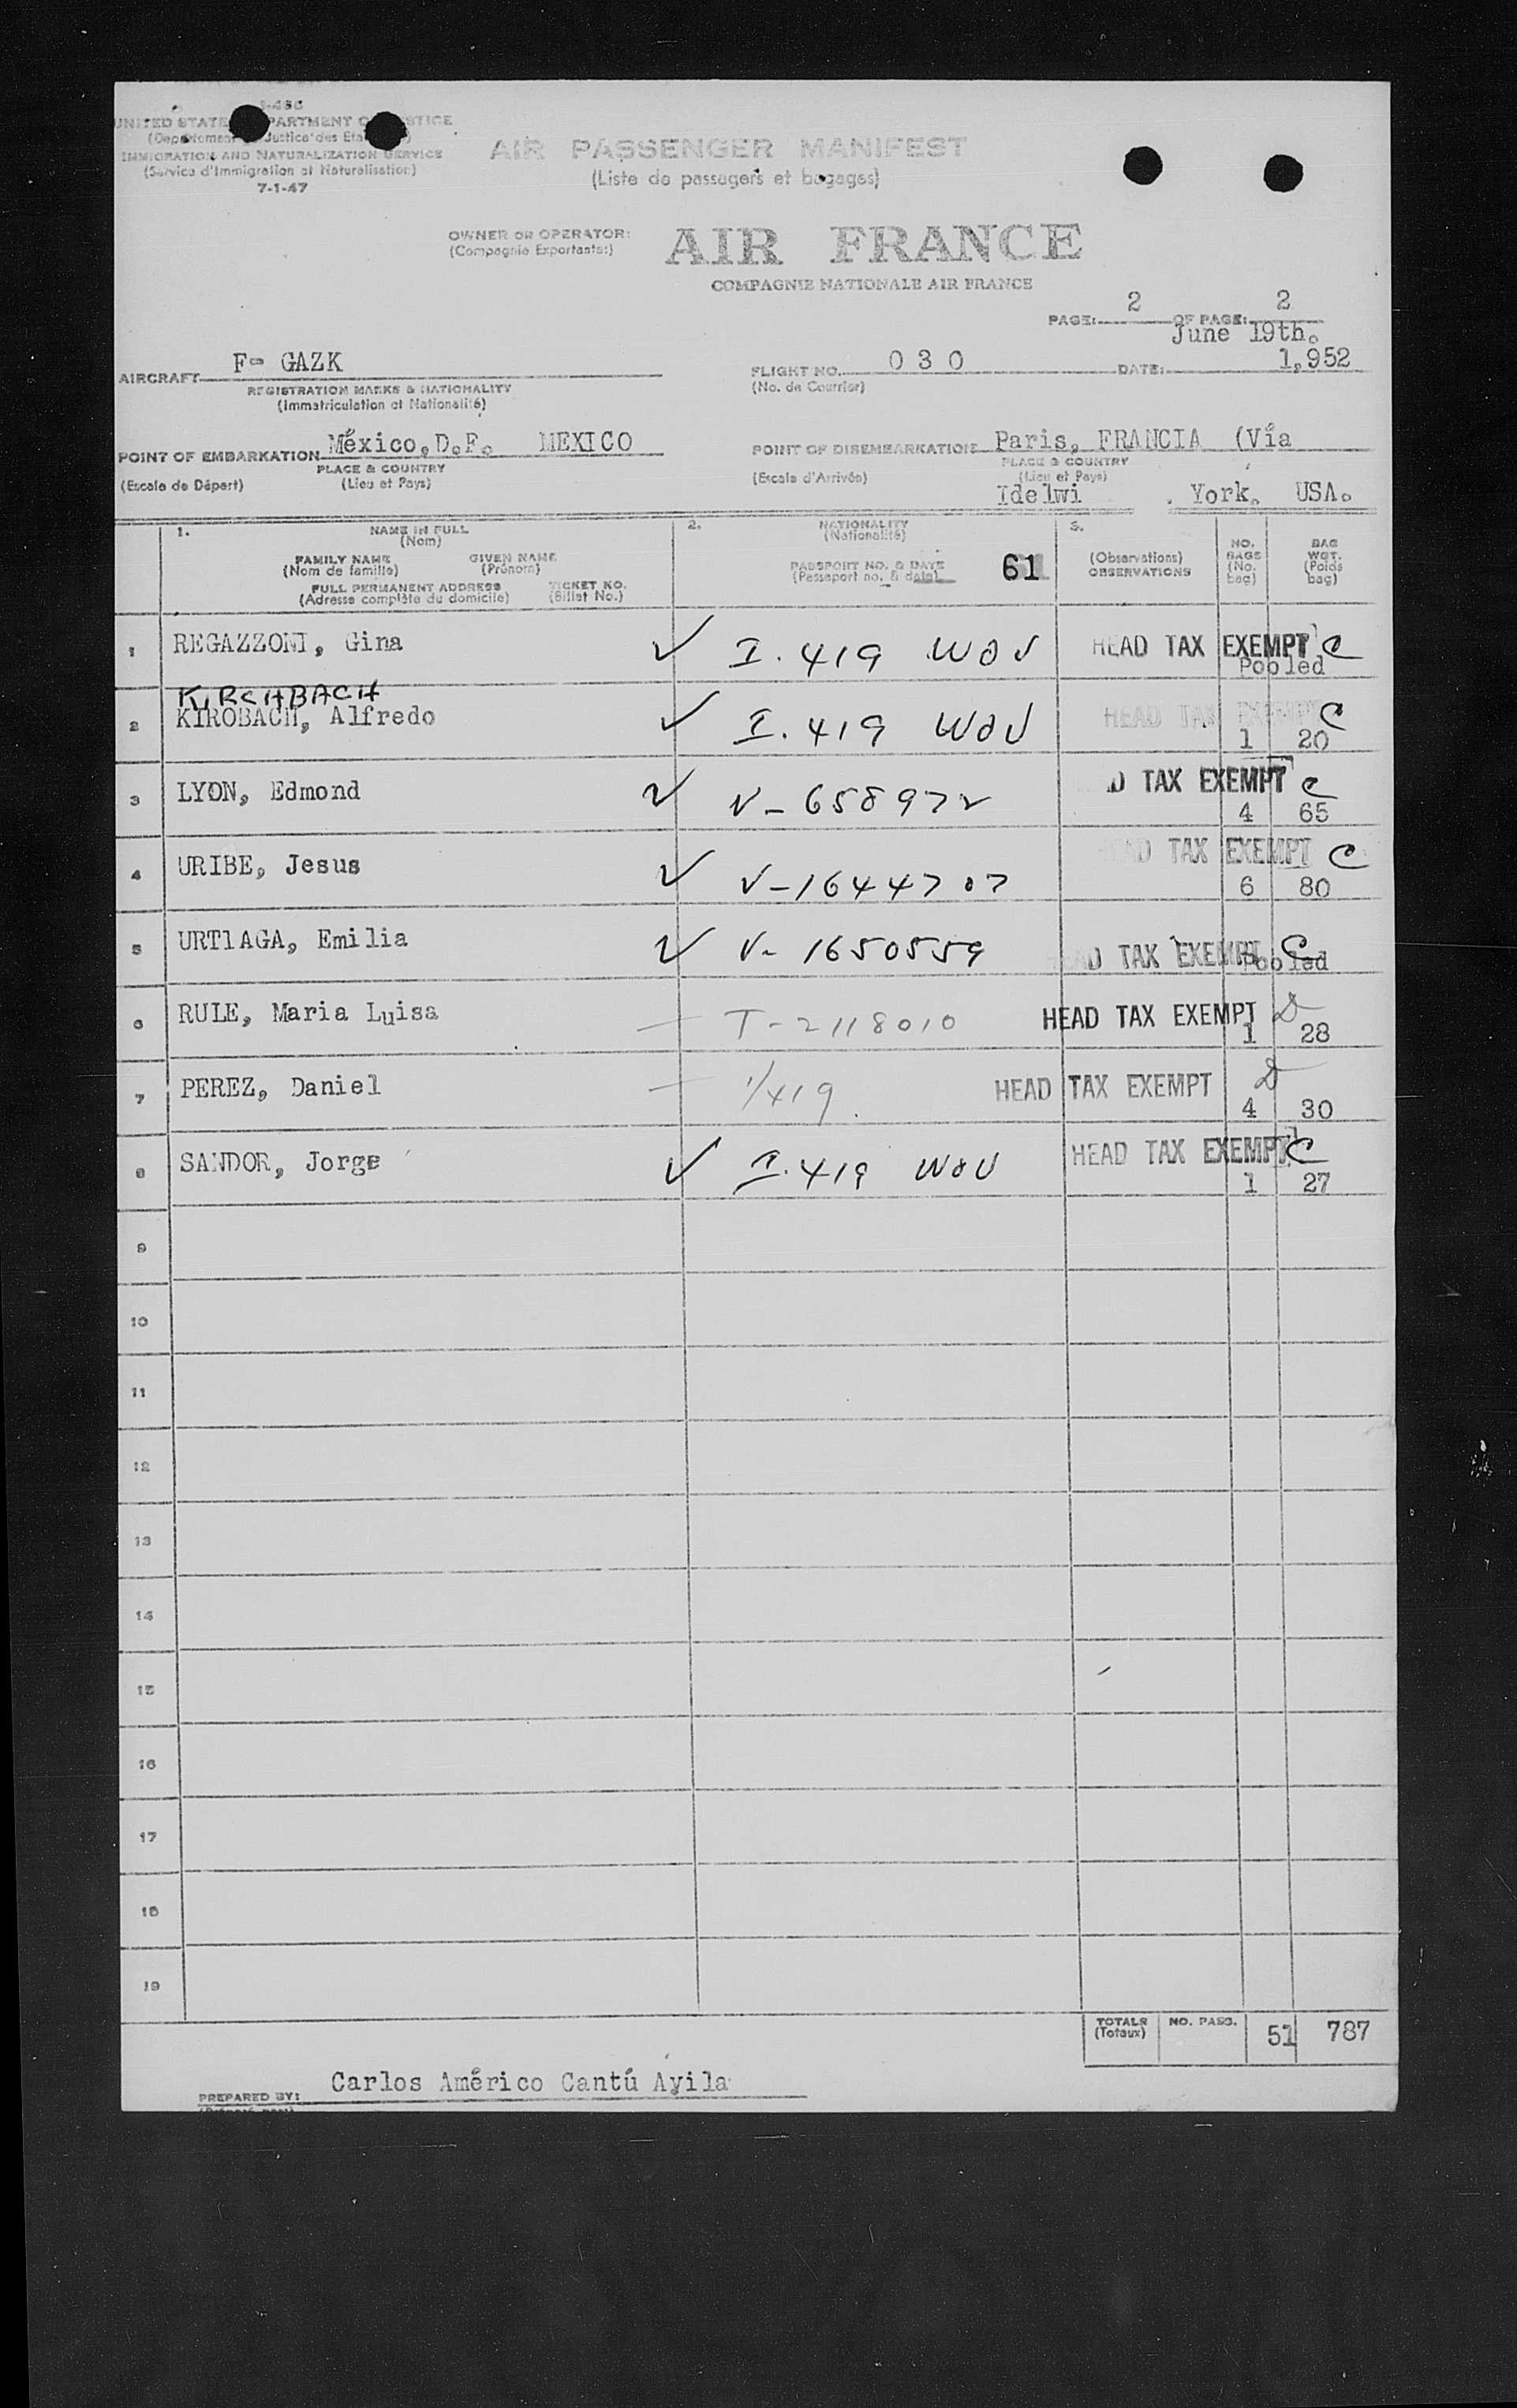 I-466
UNITED STATE PARTMENT O STICE
(Departement Justice des Eta )
IMMIGRATION AND NATURALIZATION SERVICE
(Service d'Immigration et Naturalisation)
7-1-47
AIR PASSENGER MANIFEST
(Liste de passagers et bagages)
OWNER OR OPERATOR:
(Compagnie Exportante:)
AIR FRANCE
COMPAGNIE NATIONALE AIR FRANCE
PAGE: 2 OF PAGE: 2
June 19th.
AIRCRAFT F- GAZK
REGISTRATION MARKS & NATIONALITY
(Immatriculation et Nationalité)
FLIGHT NO. 0 3 0
(No. de Courrier)
DATE: 1,952
POINT OF EMBARKATION México, D.F. MEXICO
PLACE & COUNTRY
(Escale de Départ) (Lieu et Pays)
POINT OF DISEMBARKATION Paris, FRANCIA (Vía
PLACE & COUNTRY
(Escale d'Arrivée) (Lieu et Pays)
Idelwi . York. USA.
1. NAME IN FULL
(Nom)
FAMILY NAME GIVEN NAME
(Nom de famille) (Prénom)
FULL PERMANENT ADDRESS TICKET NO.
(Adresse complète du domicile) (Billet No.)
2. NATIONALITY
(Nationalité)
PASSPORT NO. & DATE
(Passeport no. & date) 61
3.
(Observations)
OBSERVATIONS
NO. BAGS (No. bag)
BAG WGT. (Poids bag)
1 REGAZZONI, Gina ✓ I. 419 WOV HEAD TAX EXEMPT C
Pooled
KIRSCHBACH
2 KIROBACH, Alfredo ✓ I. 419 WOV HEAD TAX EXEMPT C
1 20
3 LYON, Edmond ✓ V-658972 D TAX EXEMPT C
4 65
4 URIBE, Jesus ✓ V-1644707 HEAD TAX EXEMPT C
6 80
5 URT1AGA, Emilia ✓ V- 1650559 HEAD TAX EXEMPT C
Pooled
6 RULE, Maria Luisa — T-2118010 HEAD TAX EXEMPT D
1 28
7 PEREZ, Daniel — 1/419. HEAD TAX EXEMPT D
4 30
8 SANDOR, Jorge ✓ I. 419 WOV HEAD TAX EXEMPT C
1 27
9
10
11
12
13
14
15
16
17
18
19
TOTALS
(Totaux) NO. PASS. 51 787
PREPARED BY: Carlos Américo Cantú Ayila